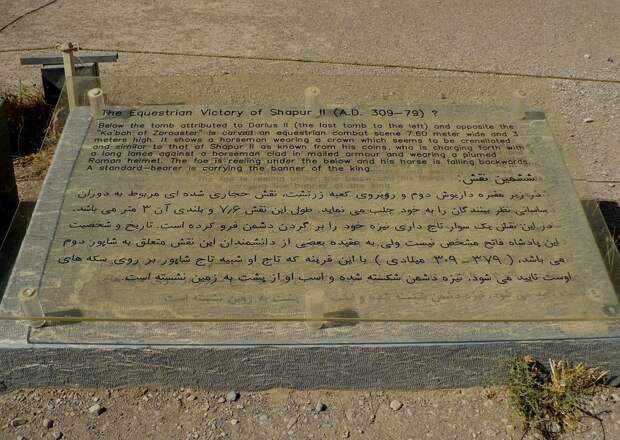 The Equestrian Victory of Shapur II (A.D. 309-79) ?
Below the tomb attributed to Darius II (the last tomb to the left) and opposite the
"Ka'bah of Zoroaster" is carved an equestrian combat scene 7.60 meter wide and 3
meters high. It shows a horseman wearing a crown which seems to be crenellated
and similar to that of Shapur II as known from his coins, who is charging forth with
a long lance against a horseman clad in mailed armour and wearing a plumed
Roman helmet. The foe is reeling under the below and his horse is falling backwards.
A standard-bearer is carrying the banner of the king.
ششمین نقش:
در زیر مقبره داریوش دوم و روبروی کعبه زرتشت، نقش حجاری شده ای مربوط به دوران
ساسانی نظر بینندگان را به خود جلب می نماید. طول این نقش ۷٫۶ و بلندی آن ۳ متر می باشد.
در این نقش یک سوار تاج داری نیزه خود را بر گردن دشمن فرو کرده است. تاریخ و شخصیت
این پادشاه فاتح مشخص نیست ولی به عقیده بعضی از دانشمندان این نقش متعلق به شاپور دوم
می باشد، ( ۳۷۹ - ۳۰۹ میلادی ) با این قرینه که تاج او شبیه تاج شاپور بر روی سکه های
اوست تایید می شود، نیزه دشمن شکسته شده و اسب او از پشت به زمین نشسته است.